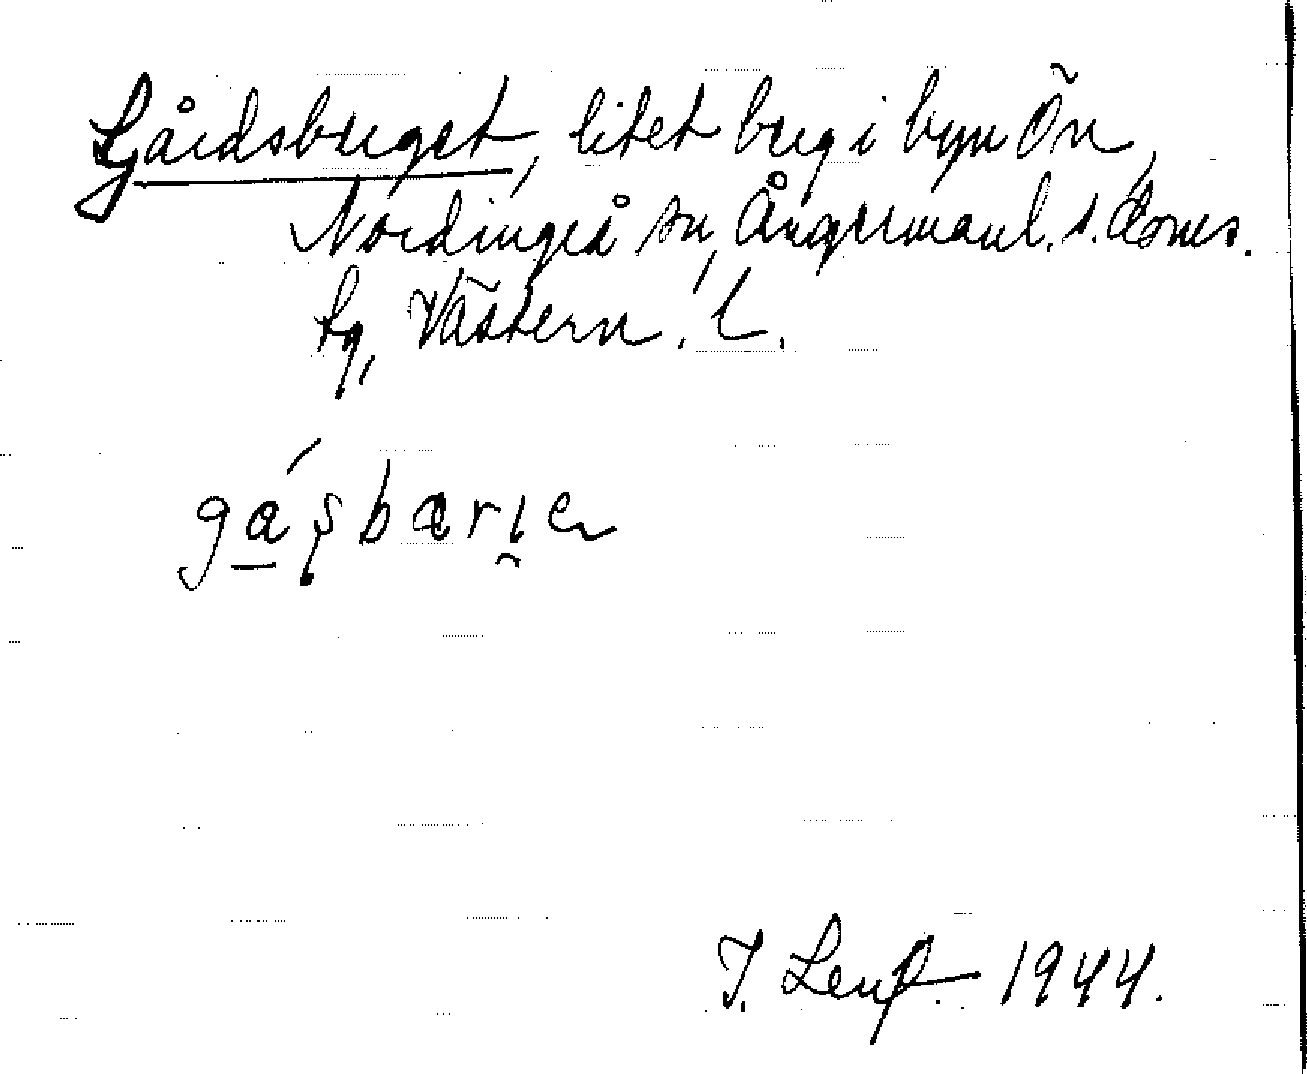 Gårdsberget, litet berg i byn Ön,
Nordingrå sn, Ångermanl. s. doms.
tg, Västern. l.
gáṣbærịe
T. Lenf 1944.